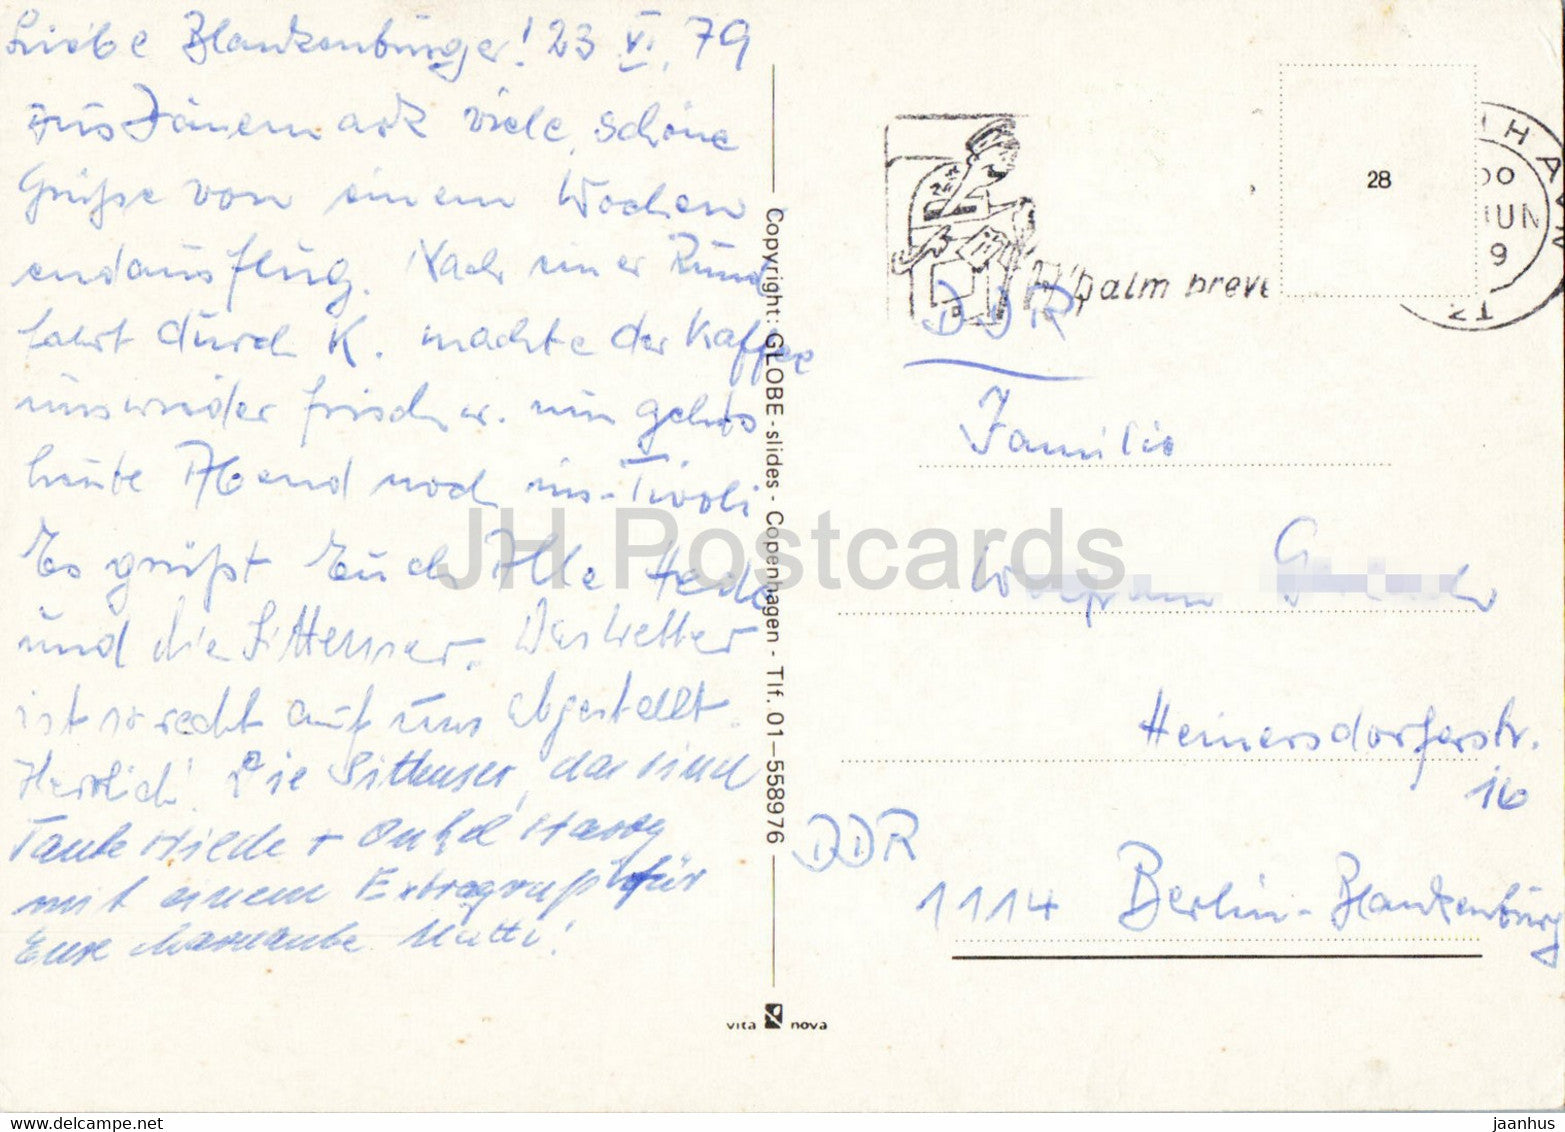 Liebe Blankenbürger! 23 VI. 79
aus Dänemark viele, schöne
Grüße von einem Wochen
endausflug. Nach einer Rund
fahrt durch K. machte der Kaffee
uns wieder frisch u. nun gehts
heute Abend noch ins Tivoli
Es grüßt Euch Alle Hede
und die Sittenser. Das Wetter
ist so recht auf uns abgestellt.
Herrlich! Die Sittenser, das sind
Tante Hilde + Onkel Harry
mit einem Extragruß für
Eure Mutti!
Copyright: GLOBE-slides - Copenhagen - Tlf. 01-558976
vita nova
HAVN
00
JUN
9
28
palm breve
DDR
Familie
Heinersdorferstr.
16
DDR
1114 Berlin-Blankenburg
JH Postcards
hw-muenzen.de
jaanhus